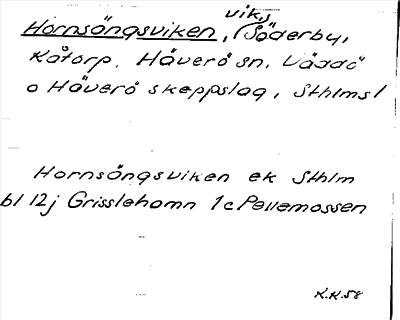 Hornsängsviken, vik, (Söderby,
Kåtorp, Häverö sn, Väddö
o Häverö skeppslag, Sthlms l
Hornsängsviken ek Sthlm
bl 12j Grisslehamn 1c Pellemossen
K.K.58